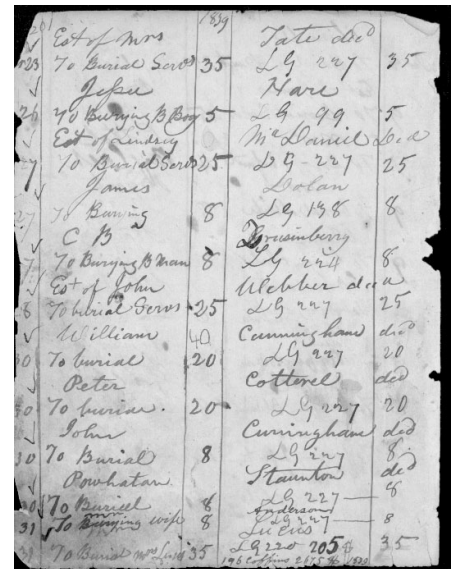 1839
Est of Mrs Tate decd
23 To Burial Servs 35 LG 227 35
Jesse Hare
26 To Burying B Boy 5 LG 99 5
Est of Lindsey McDaniel Decd
27 To Burial Servs 25 LG 227 25
James Dolan
27 To Burying 8 LG 138 8
C B Brusenberry
7 To Burying B Man 8 LG 224 8
Est of John Webber decd
8 To burial Servs 25 LG 227 25
William 40 Cunningham decd
30 To burial 20 LG 227 20
Peter Cotterel decd
30 To burial. 20 LG 227 20
John Cunningham decd
30 To Burial 8 LG 227 8
Powhatan Staunton decd
30 To Buriel 8 LG 227 8
Anderson
31 To Burying wife 8 LG 227 8
Lucius
31 To Burial Mrs 35 LG 220 205 $ 35
198 Coffins 1839